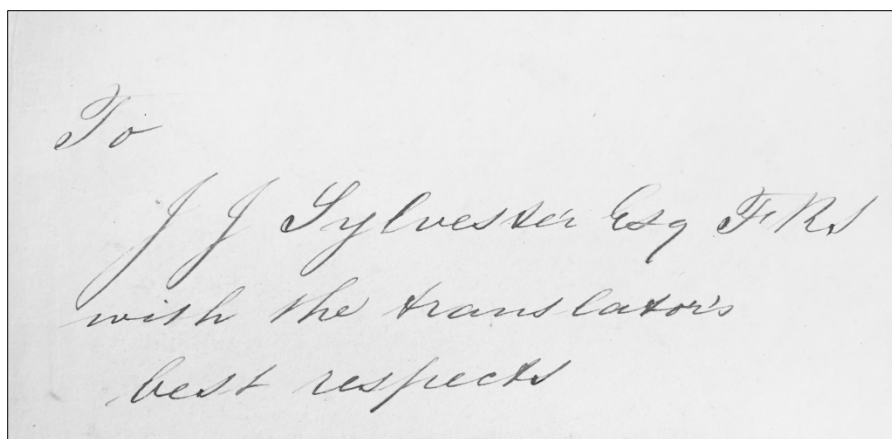 To
J J Sylvester Esq F R S
with the translator's
best respects